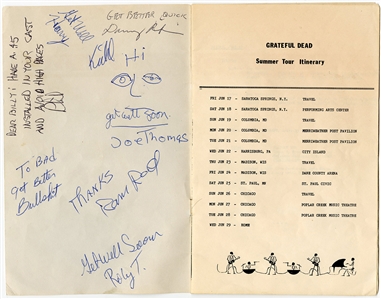 GET BETTER QUICK
Get Well
Hi
DEAR BILLY: HAVE A .45
INSTALLED IN YOUR CAST
AND AVOID HIGH PLACES
get well soon
Joe Thomas
To Bad
got Better
Bullshit
THANKS
Ram Rod
Get Well Soon
Roly T.
GRATEFUL DEAD
Summer Tour Itinerary
FRI JUN 17 - SARATOGA SPRINGS, N.Y. TRAVEL
SAT JUN 18 - SARATOGA SPRINGS, N.Y. PERFORMING ARTS CENTER
SUN JUN 19 - COLUMBIA, MD TRAVEL
MON JUN 20 - COLUMBIA, MD MERRIWEATHER POST PAVILION
TUE JUN 21 - COLUMBIA, MD MERRIWEATHER POST PAVILION
WED JUN 22 - HARRISBURG, PA CITY ISLAND
THU JUN 23 - MADISON, WIS TRAVEL
FRI JUN 24 - MADISON, WIS DANE COUNTY ARENA
SAT JUN 25 - ST. PAUL, MN ST. PAUL CIVIC
SUN JUN 26 - CHICAGO TRAVEL
MON JUN 27 - CHICAGO POPLAR CREEK MUSIC THEATRE
TUE JUN 28 - CHICAGO POPLAR CREEK MUSIC THEATRE
WED JUN 29 - HOME